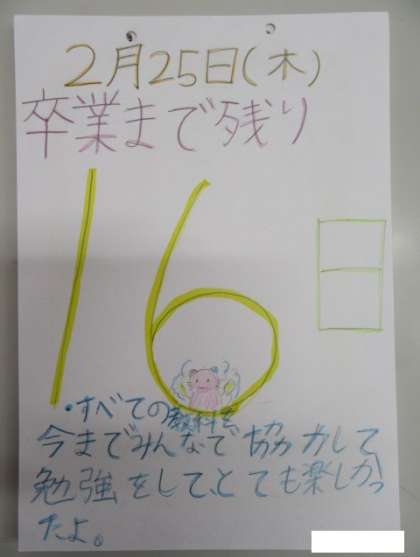 2月25日(木)
卒業まで残り
16日
・すべての教科を
今までみんなで協力して
勉強をして、とても楽しかっ
たよ。